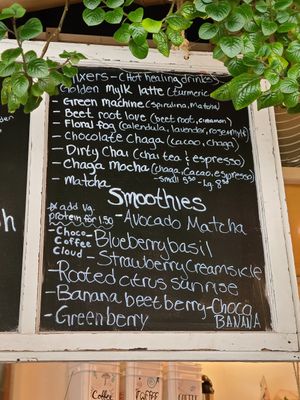 Elixers - (Hot healing drinks)
Golden Mylk latte (turmeric
- Green machine (spirulina, matcha)
- Beet root love (beet root, cinnamon
- Floral fog (calendula, lavendor, rose, mylk)
- Chocolate Chaga (cacao, chaga)
- Dirty Chai (chai tea & espresso)
- Chaga mocha (chaga, cacao, espresso)
- Matcha
Smoothies
add vg.
protein for 1.50
- Avocado Matcha
- Choco
Coffee
Cloud
- Blueberry basil
- Strawberry Creamsicle
- Rooted citrus sunrise
- Banana beet berry
- Choco
BANANA
- Greenberry
Coffee
Coffee